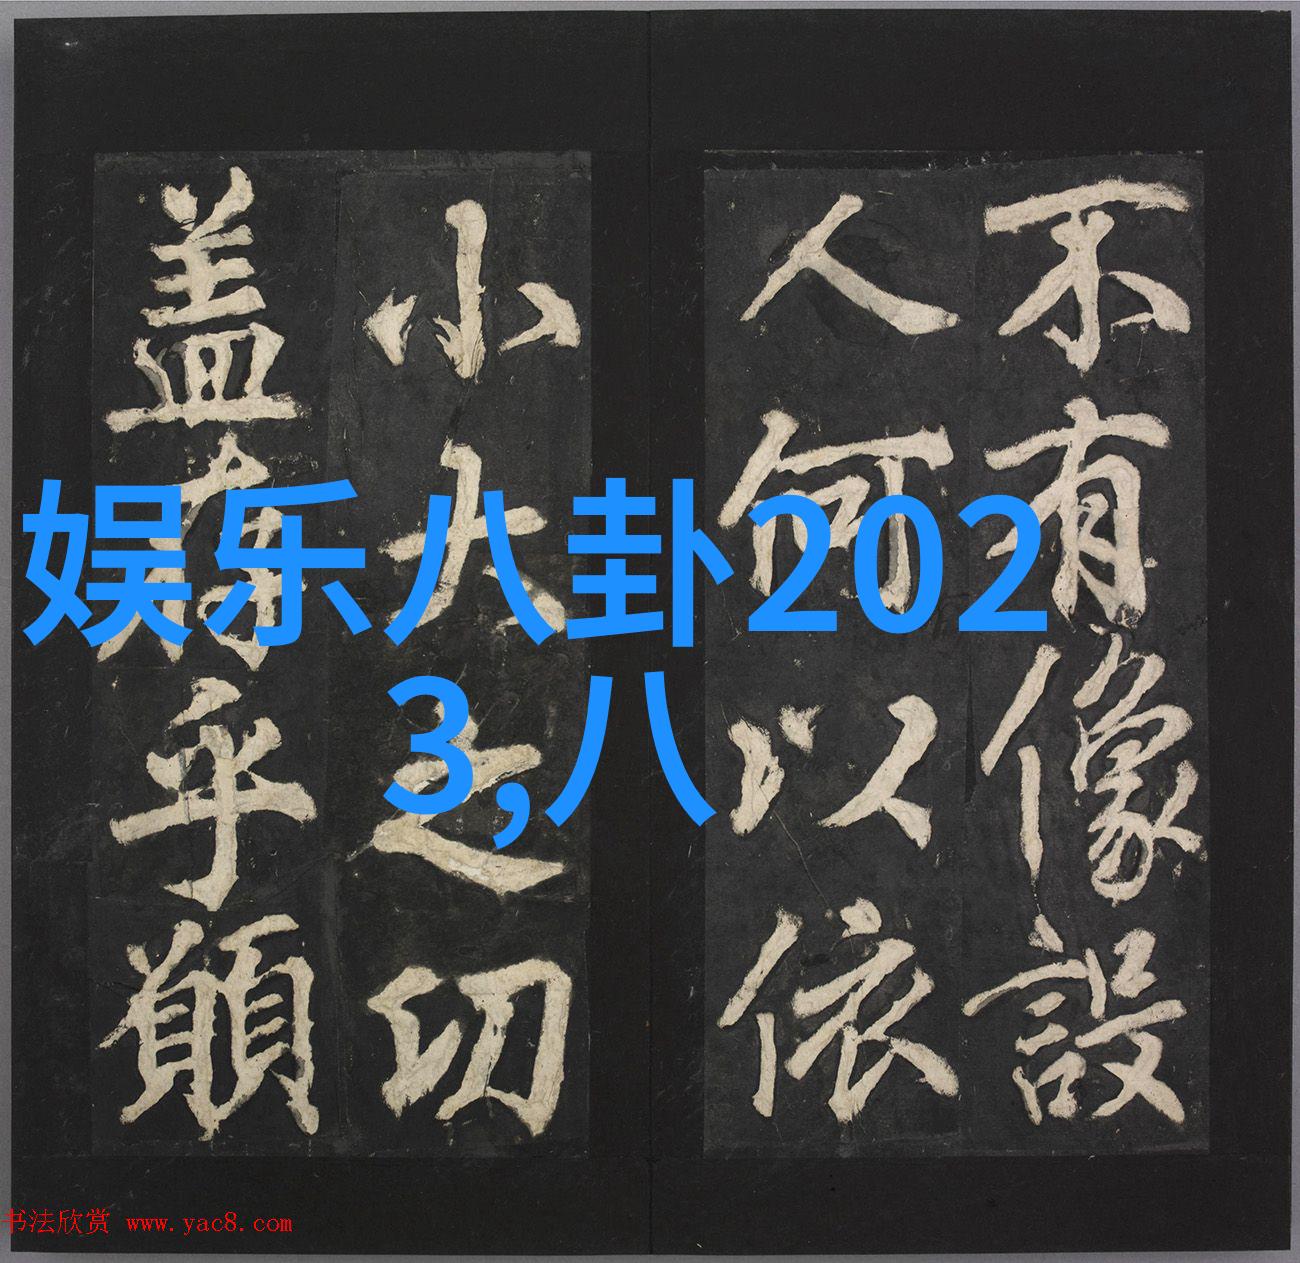 不有像設
人何以依
小大之切
盖有乎願
娱乐八卦202
3,八
书法欣赏 www.yac8.com